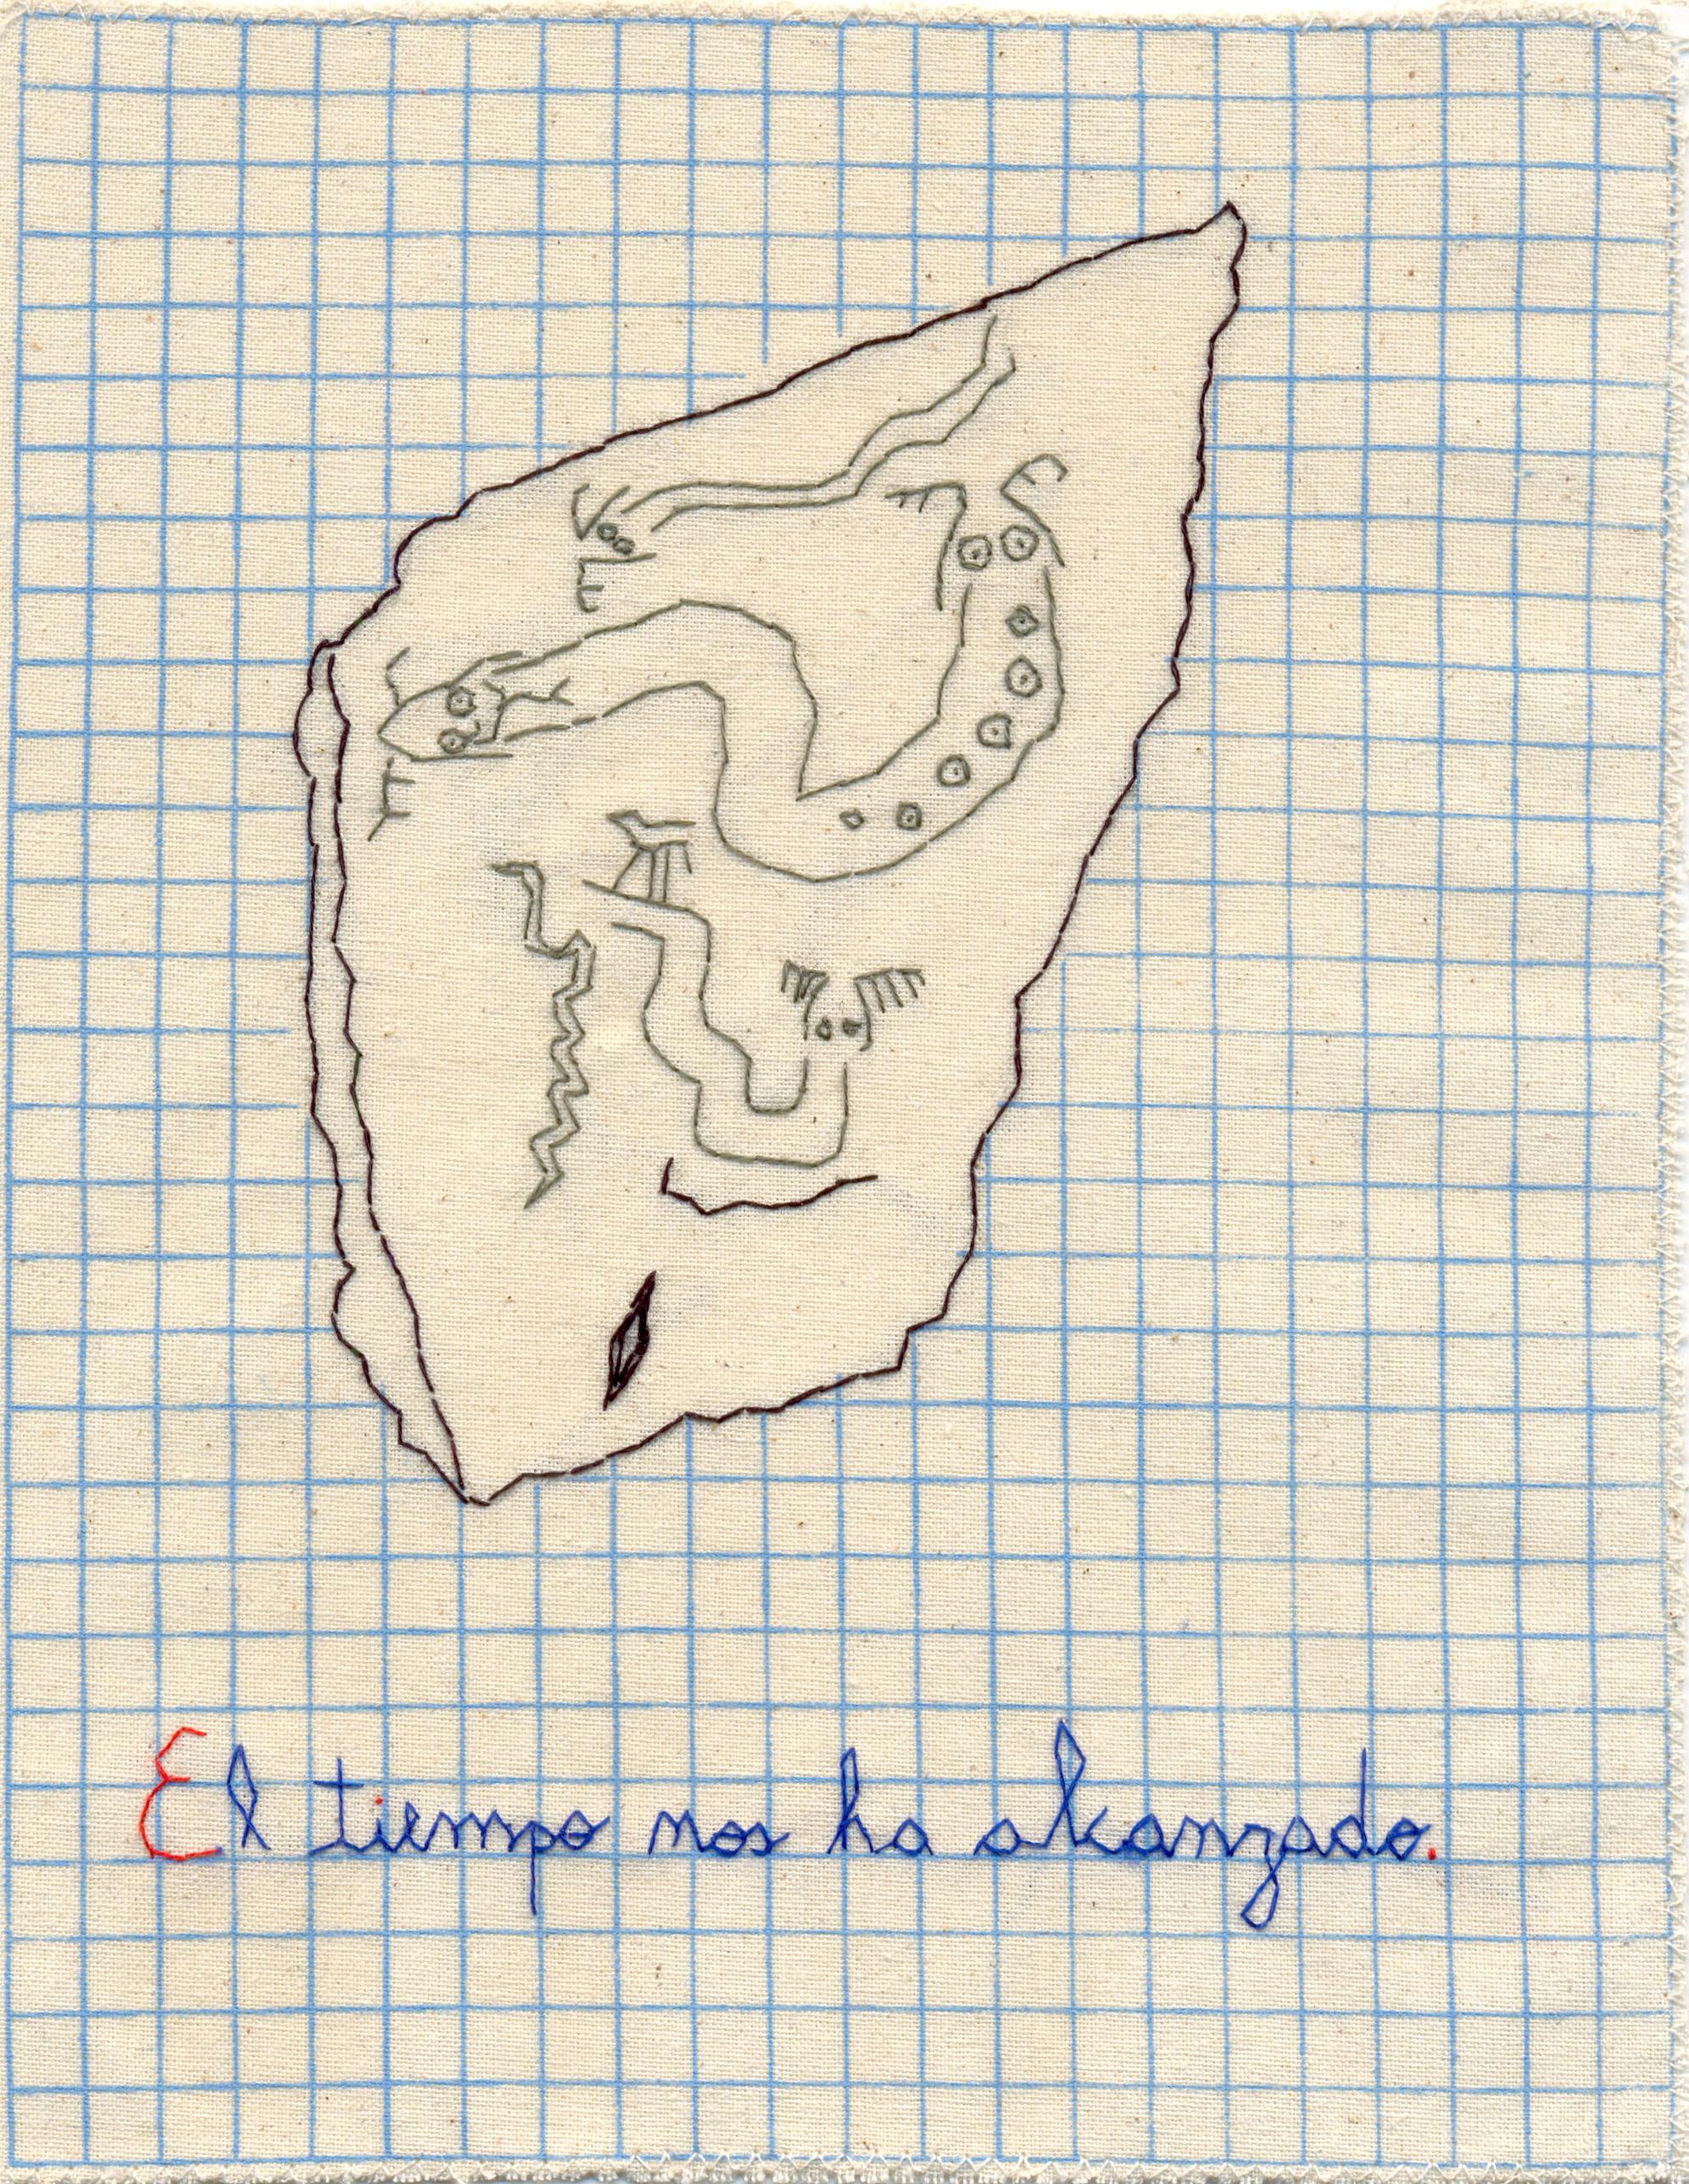 El tiempo nos ha alcanzado.